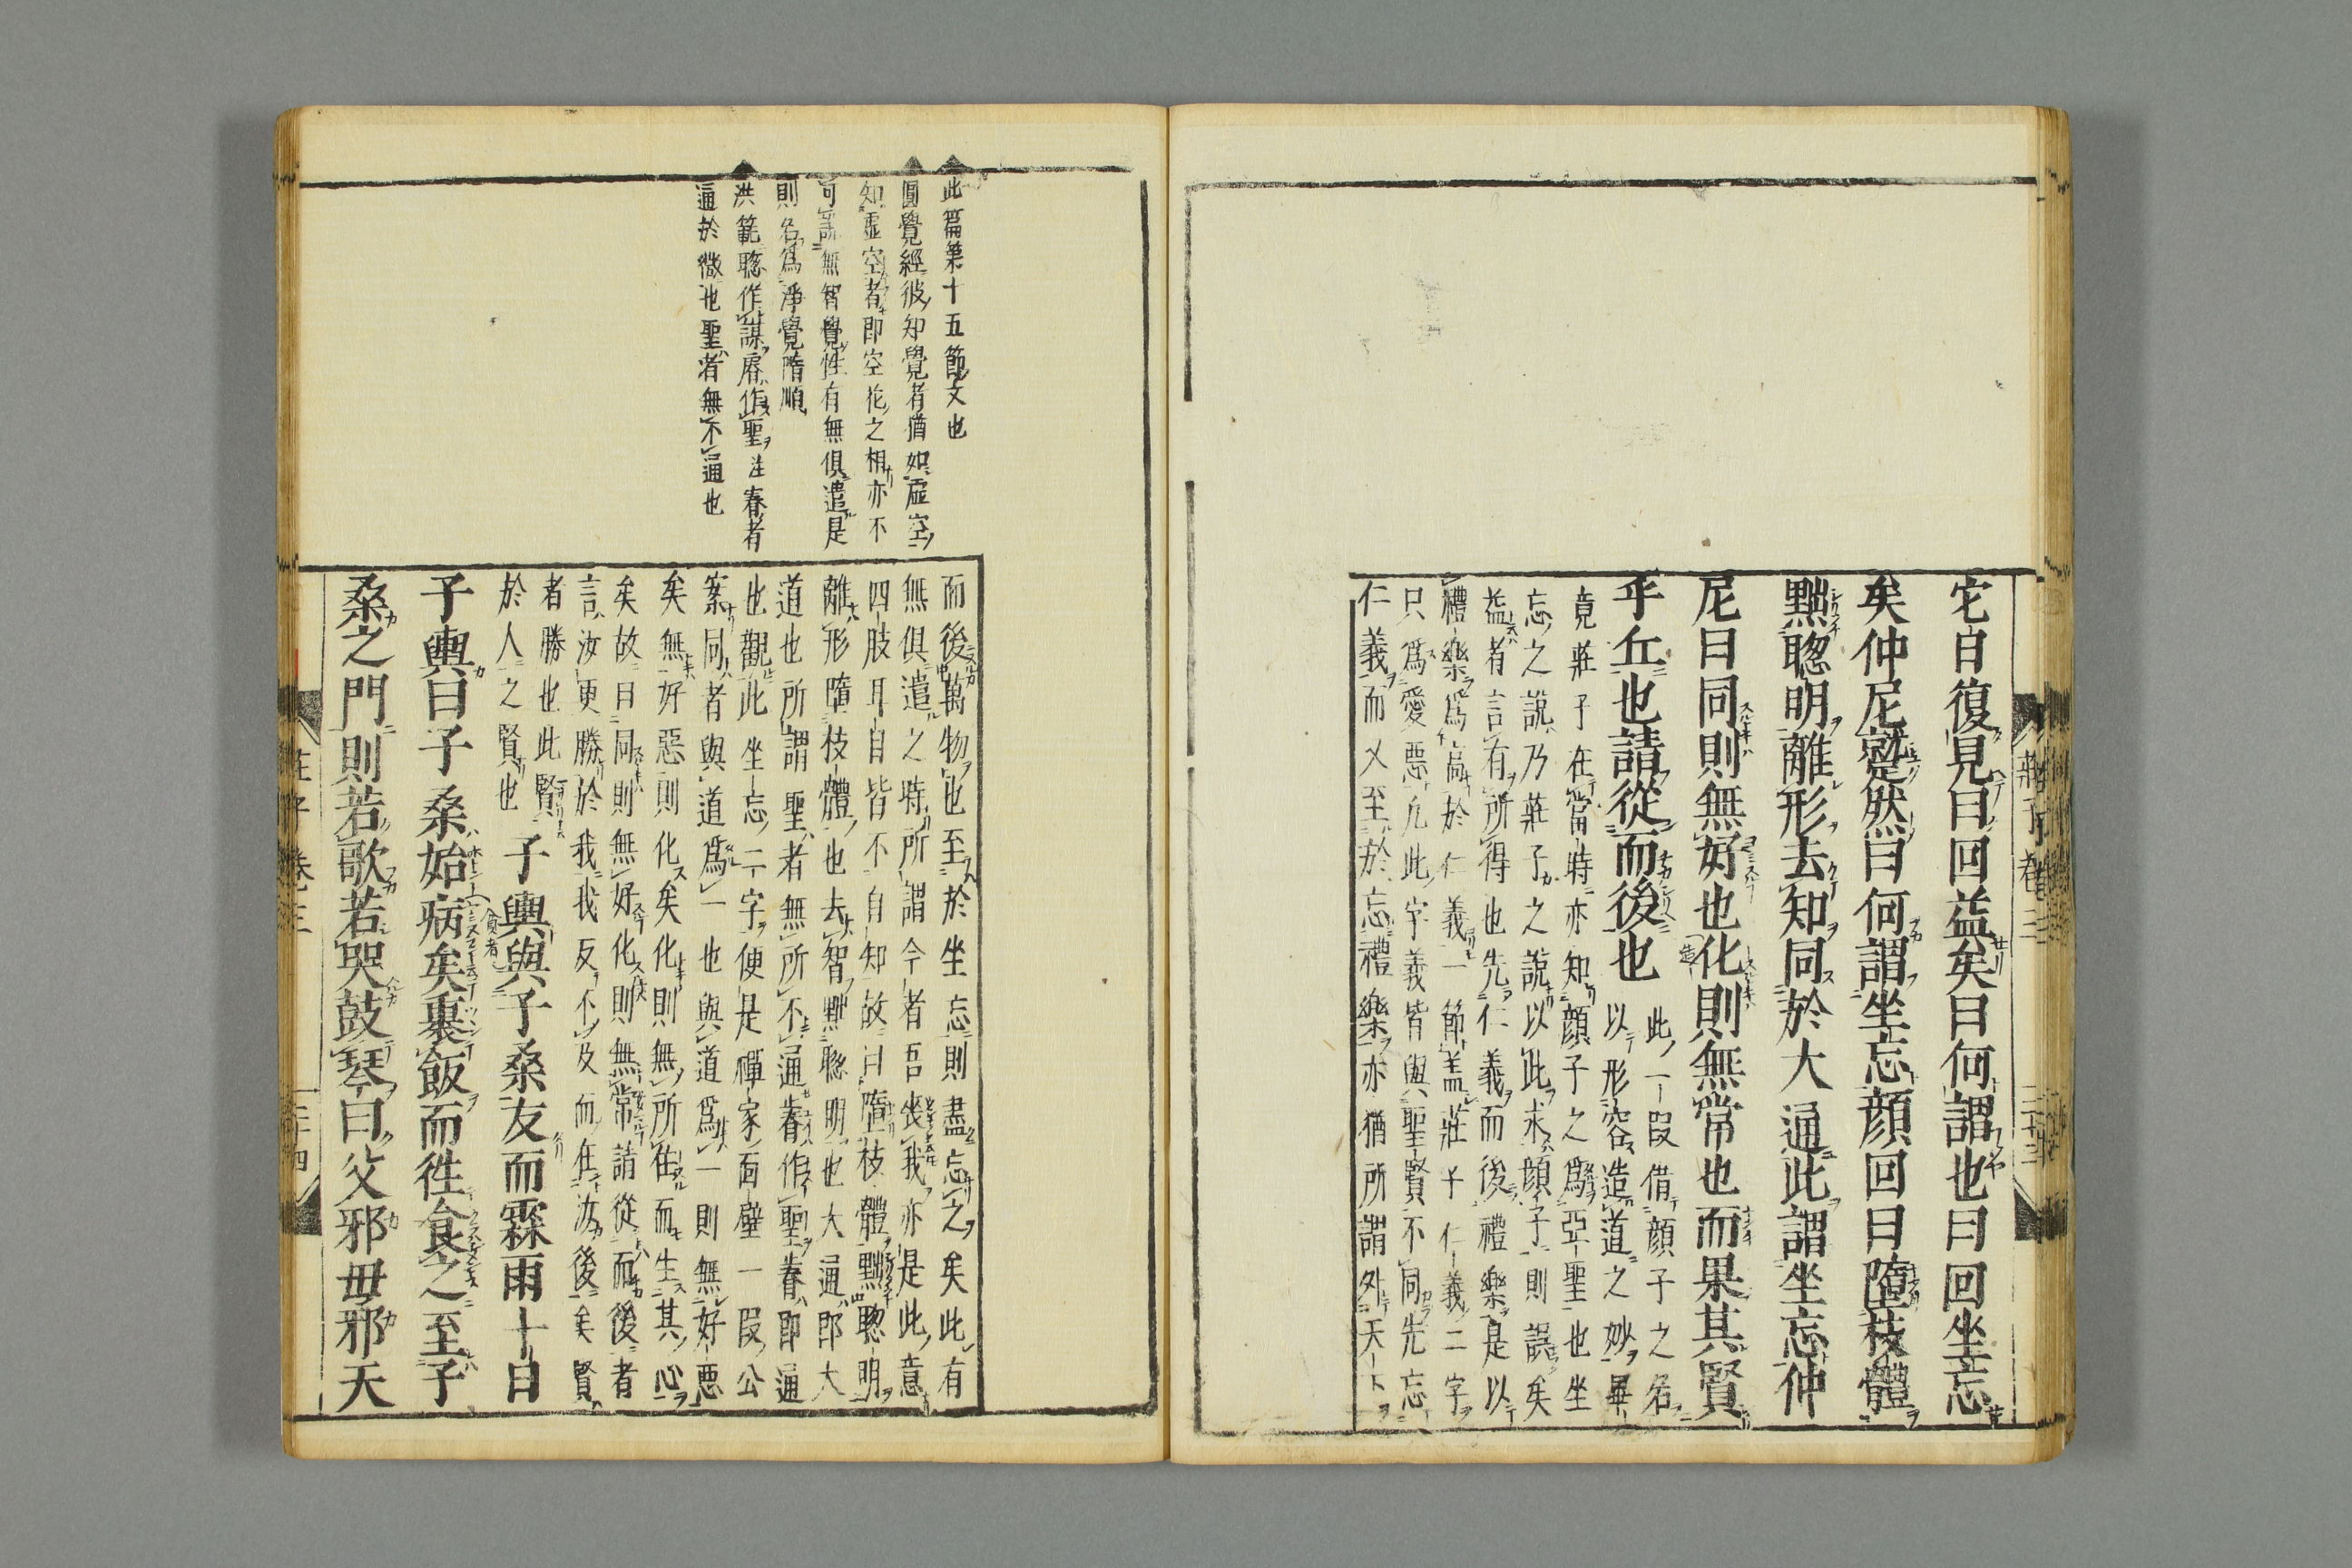 它日復見曰回益矣曰何謂也曰回坐忘
矣仲尼蹵然曰何謂坐忘顔回曰墮枝體
黜聦明離形去知同於大通此謂坐忘仲
尼曰同則無好也化則無常也而果其賢
乎丘也請從而後也
此一段借顔子之名
以形容造道之妙畢
竟莊子在當時亦知顔子之爲亞聖也坐
忘之說乃莊子之說以此求顔子則誤矣
益者言有所得也先仁義而後禮樂是以
禮樂爲高於仁義一節盖莊子仁義二字
只爲愛惡凢此字義皆與聖賢不同先忘
仁義而又至於忘禮樂亦猶所謂外天下
莊子卷三
二十三
此篇第十五節文也
圓覺經彼知覺者猶如虛空
知虛空者即空花之相亦不
可說無智覺性有無俱遣是
則名爲淨覺隋順
洪範聦作謀睿作聖注睿者
通於微也聖者無不通也
而後萬物也至於坐忘則盡忘之矣此有
無俱遣之時所謂今者吾喪我亦是此意
四肢耳目皆不自知故曰墮枝體黜聦明
離形墮枝體也去智黜聦明也大通即大
道也所謂聖者無所不通睿作聖睿即通
也觀此坐忘二字便是禪家面壁一段公
案同者與道爲一也與道爲一則無好惡
矣無好惡則化矣化則無所住而生其心
矣故曰同則無好化則無常請從而後者
言汝更勝於我我反不及而在汝後矣賢
者勝也此賢
於人之賢也
子輿與子桑友而霖雨十日
子輿曰子桑始病矣裹飯而徃食之至子
桑之門則若歌若哭鼓琴曰父邪母邪天
莊子卷三
二十四